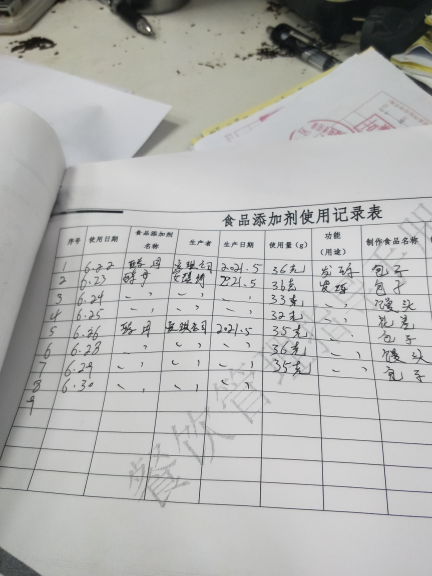 食品添加剂使用记录表
序号 使用日期 食品添加剂名称 生产者 生产日期 使用量(g) 功能(用途) 制作食品名称
1 6.22 酵母 安琪公司 2021.5 36克 发酵 包子
2 6.23 酵母 安琪 2021.5 36克 发酵 包子
3 6.24 〃 〃 〃 33克 〃 馒头
4 6.25 〃 〃 〃 32克 〃 花卷
5 6.26 酵母 安琪公司 2021.5 35克 〃 包子
6 6.28 〃 〃 〃 36克 〃 馒头
7 6.29 〃 〃 〃 35克 〃 包子
8 6.30 〃 〃 〃
9
餐饮管理